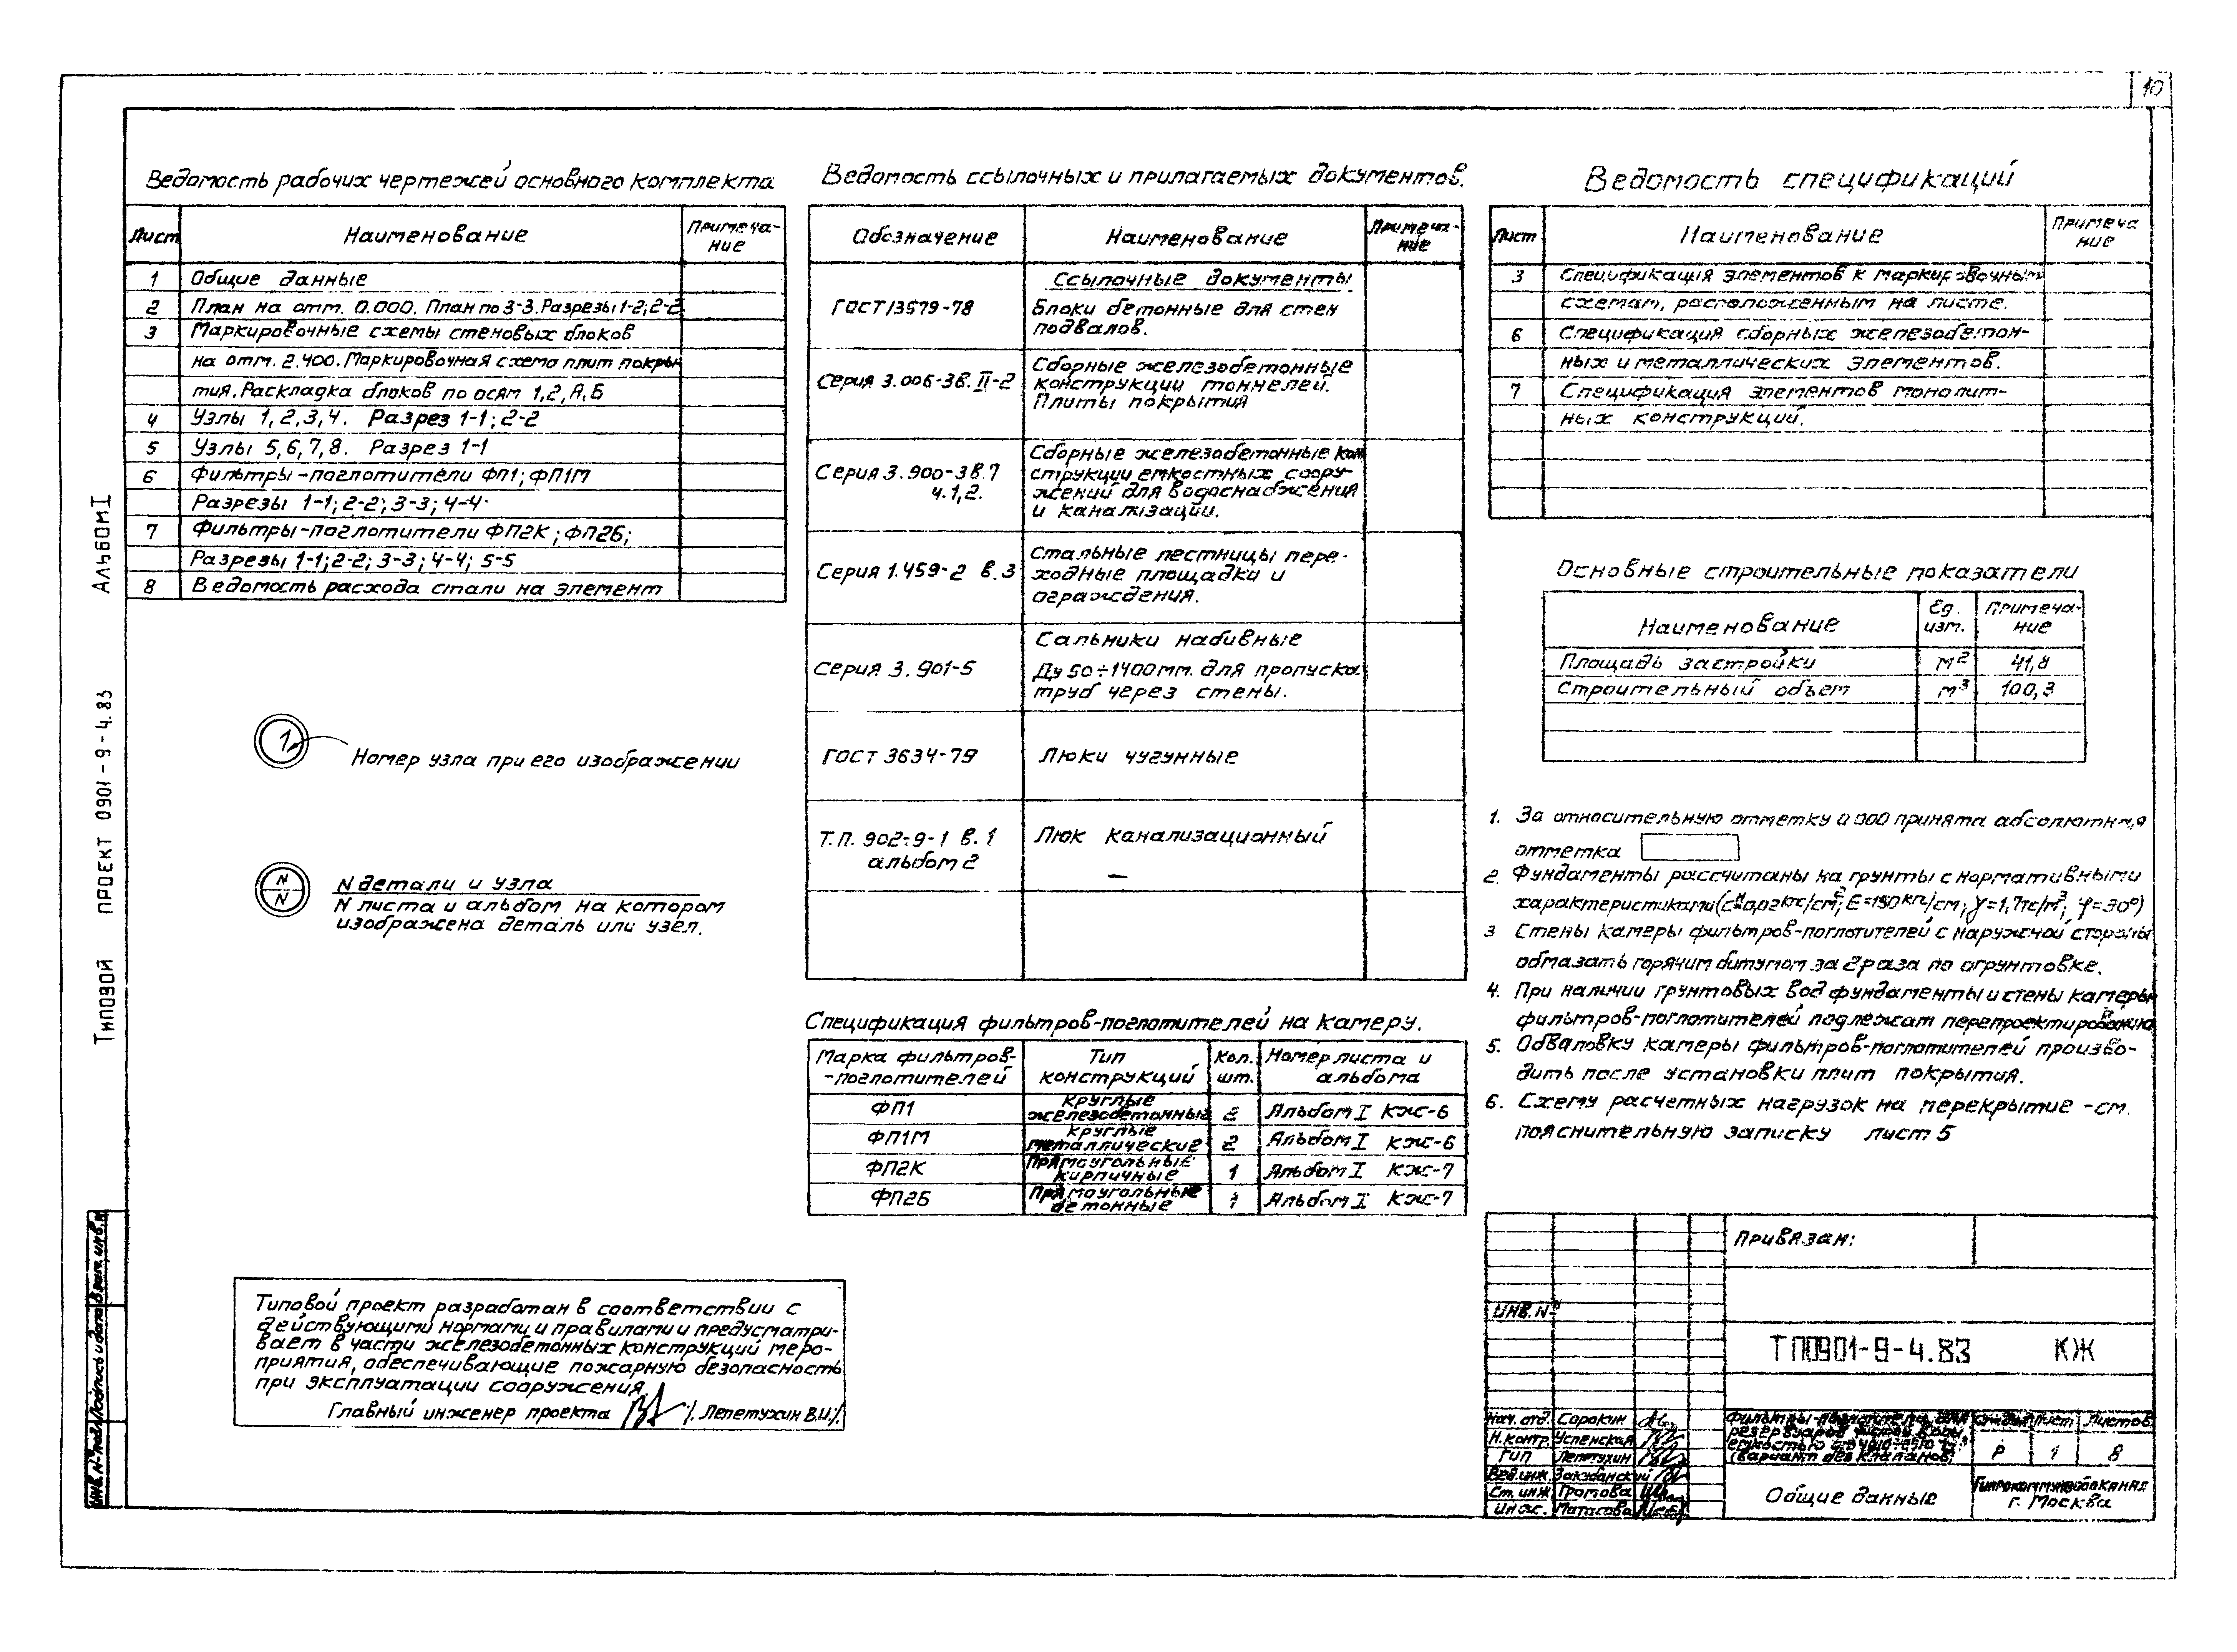 10
Ведомость рабочих чертежей основного комплекта
Лист
Наименование
Примеча-
ние
1 Общие данные
2 План на отм. 0.000. План по 3-3. Разрезы 1-2; 2-2
3 Маркировочные схемы стеновых блоков
на отм. 2.400. Маркировочная схема плит покры
тия. Раскладка блоков по осям 1,2,А,Б
4 Узлы 1,2,3,4. Разрез 1-1; 2-2
5 Узлы 5,6,7,8. Разрез 1-1
6 Фильтры-поглотители ФП1; ФП1М
Разрезы 1-1; 2-2; 3-3; 4-4
7 Фильтры-поглотители ФП2К; ФП2Б;
Разрезы 1-1; 2-2; 3-3; 4-4; 5-5
8 Ведомость расхода стали на элемент
1
Номер узла при его изображении
N
N
N детали и узла
N листа и альбом на котором
изображена деталь или узел.
Ведомость ссылочных и прилагаемых документов.
Обозначение
Наименование
Примеча-
ние
Ссылочные документы
ГОСТ 13579-78
Блоки бетонные для стен
подвалов.
Серия 3.006-3в. II-2
Сборные железобетонные
конструкции тоннелей.
Плиты покрытия
Серия 3.900-3в.7
ч.1,2.
Сборные железобетонные кон
струкции емкостных соору-
жений для водоснабжения
и канализации.
Серия 1.459-2 в.3
Стальные лестницы пере-
ходные площадки и
ограждения.
Серия 3.901-5
Сальники набивные
Ду 50÷1400мм. для пропуска
труб через стены.
ГОСТ 3634-79
Люки чугунные
Т.П. 902-9-1 в.1
альбом 2
Люк канализационный
Спецификация фильтров-поглотителей на камеру.
Марка фильтров-
-поглотителей
Тип
конструкций
Кол.
шт.
Номер листа и
альбома
ФП1 круглые железобетонные 2 Альбом I КЖ-6
ФП1М круглые металлические 2 Альбом I КЖ-6
ФП2К Прямоугольные кирпичные 1 Альбом I КЖ-7
ФП2Б Прямоугольные бетонные 1 Альбом I КЖ-7
Ведомость спецификаций
Лист
Наименование
Примеча
ние
3 Спецификация элементов к маркировочным
схемам, расположенным на листе.
6 Спецификация сборных железобетон-
ных и металлических элементов.
7 Спецификация элементов монолит-
ных конструкций.
Основные строительные показатели
Наименование
Ед.
изм.
Примеча-
ние
Площадь застройки м2 41,8
Строительный объем м3 100,3
1. За относительную отметку 0.000 принята абсолютная
отметка
2. Фундаменты рассчитаны на грунты с нормативными
характеристиками (Сн=0,02 кгс/см2; Е=150 кгс/см; γ=1,7тс/м3; φ=30°)
3 Стены камеры фильтров-поглотителей с наружной стороны
обмазать горячим битумом за 2 раза по огрунтовке.
4. При наличии грунтовых вод фундаменты и стены камеры
фильтров-поглотителей подлежат перепроектированию
5. Обваловку камеры фильтров-поглотителей произво-
дить после установки плит покрытия.
6. Схему расчетных нагрузок на перекрытие - см.
пояснительную записку лист 5
Типовой проект разработан в соответствии с
действующими нормами и правилами и предусматри-
вает в части железобетонных конструкций меро-
приятия, обеспечивающие пожарную безопасность
при эксплуатации сооружения.
Главный инженер проекта /. Лепетухин В.И./
Привязан:
ИНВ. №
ТП0901-9-4.83 КЖ
Нач. отд. Сорокин
Н. контр. Успенская
ГИП Лепетухин
Вед. инж. Закубанский
Ст. инж Громова
Инж.
Фильтры-поглотители для
резервуаров чистой воды
емкостью
(вариант без клапанов)
Стадия Лист Листов
Р 1 8
Общие данные
Гипрокоммунводоканал
г. Москва
Типовой проект 0901-9-4.83 Альбом I
Инв. № подл. Подпись и дата Взам. инв. №